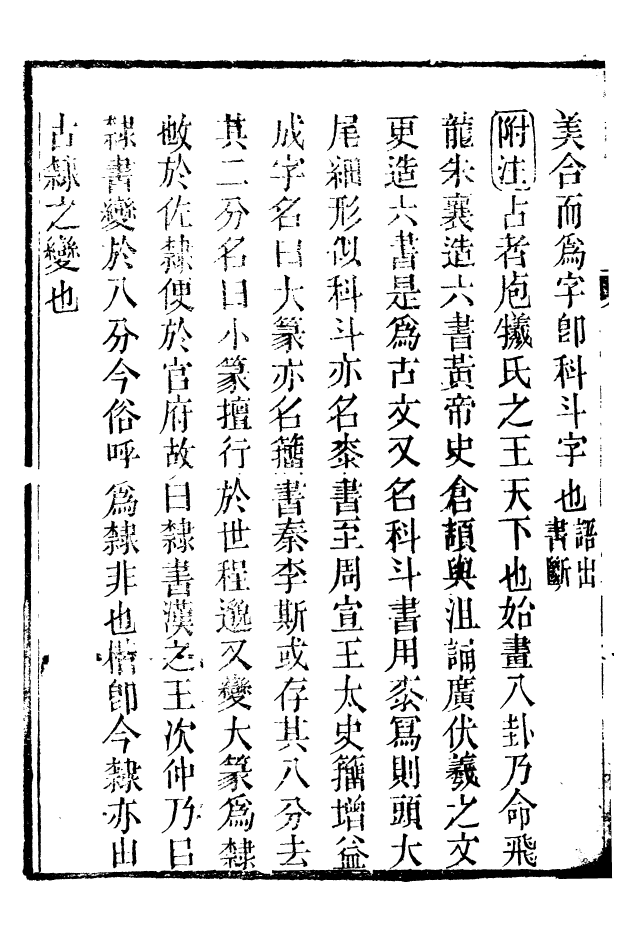 美合而爲字卽科斗字也語出書斷
附注古者庖犧氏之王天下也始畫八卦乃命飛
龍朱襄造六書黃帝史倉頡與沮誦廣伏羲之文
更造六書是爲古文又名科斗書用桼寫則頭大
尾細形似科斗亦名桼書至周宣王太史籀增益
成字名曰大篆亦名籀書秦李斯或存其八分去
其二分名曰小篆擅行於世程邈又變大篆爲隸
敏於佐隸便於官府故曰隸書漢之王次仲乃曰
隸書變於八分今俗呼爲隸非也楷卽今隸亦由
古隸之變也